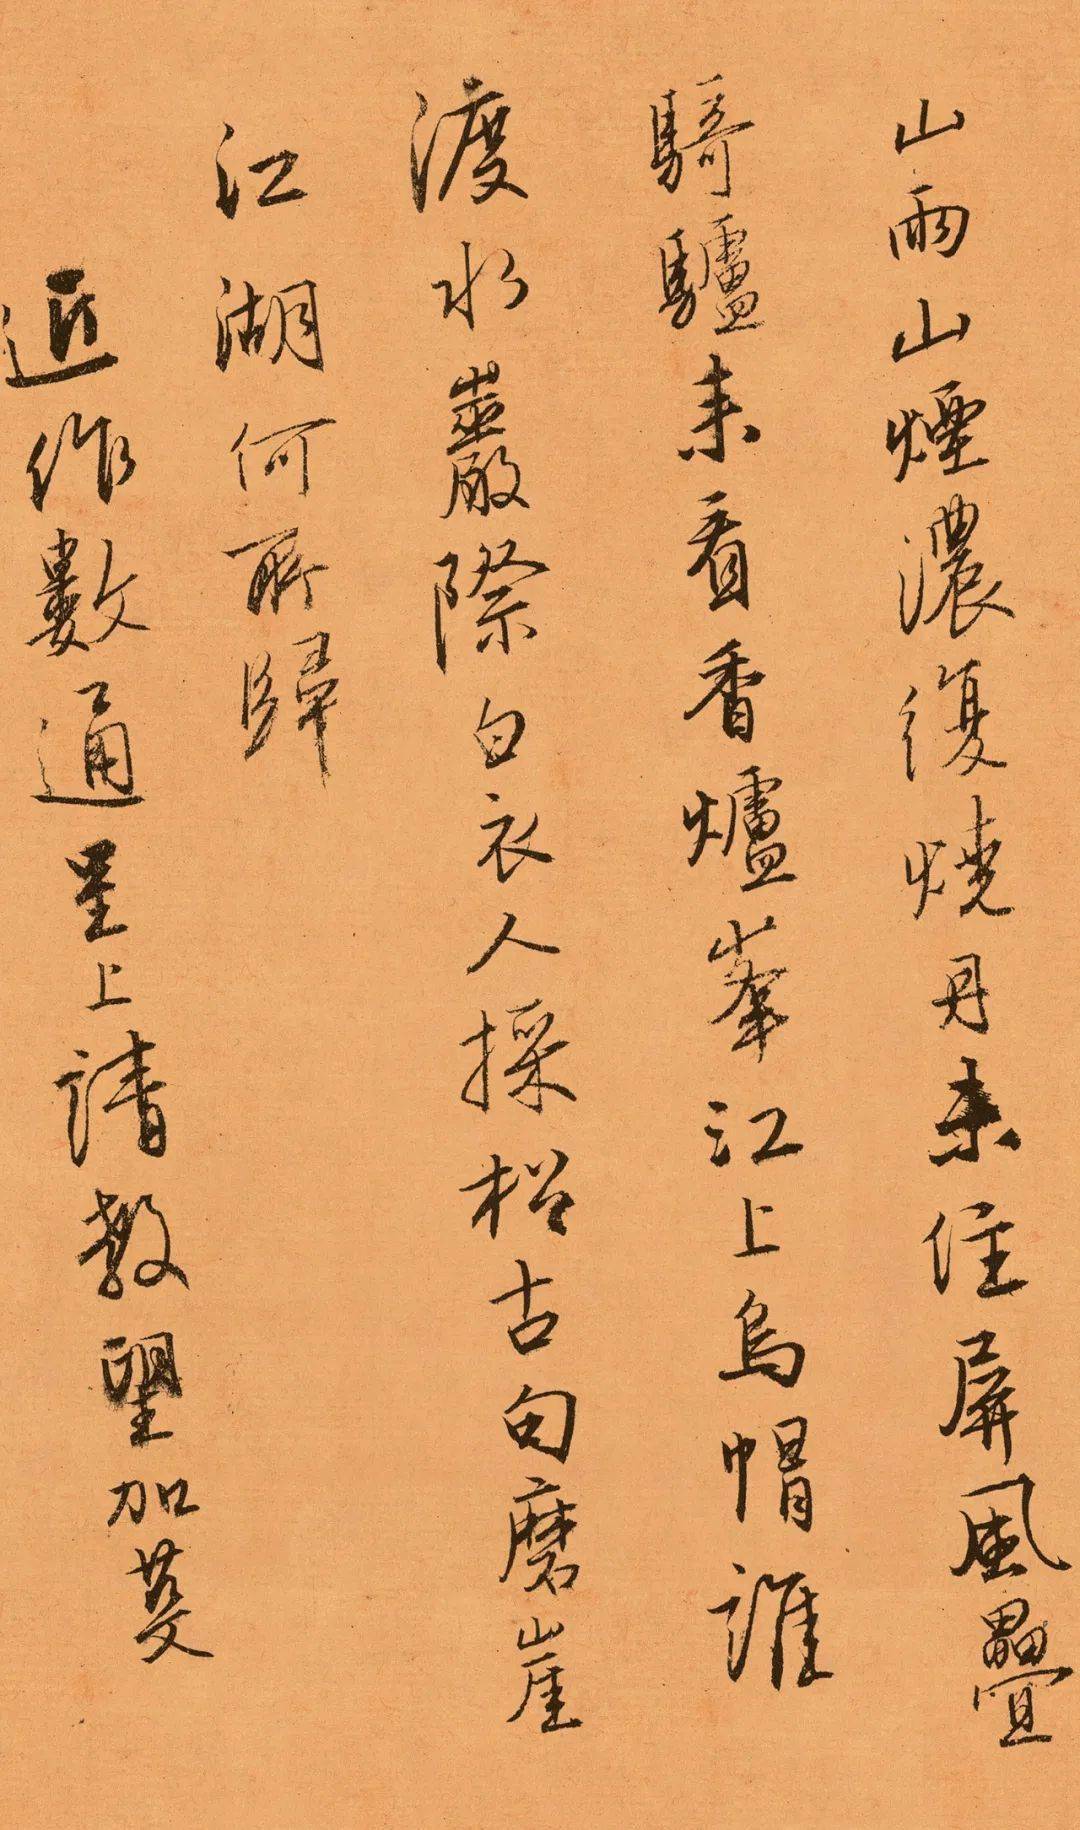 山雨山煙濃復燒丹未住屏風疊
騎驢来看香爐峯江上烏帽誰
渡水巖際白衣人採松古句磨崖
江湖何所歸
近作數通呈上請教望加芟